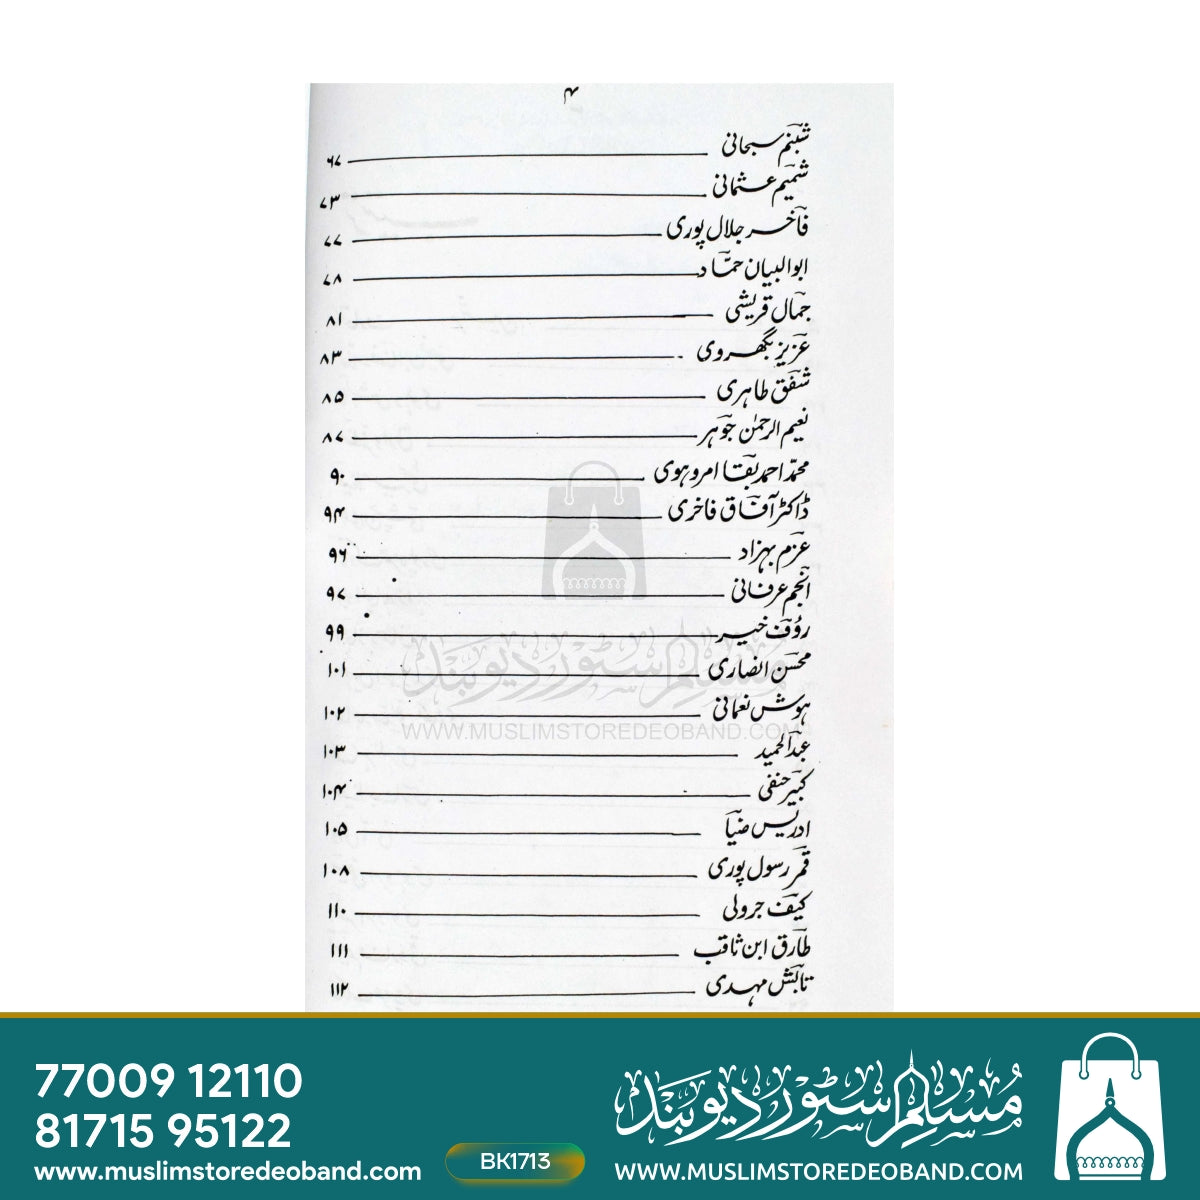 ۴
شبنم سبحانی ۶۷
شمیم عثمانی ۷۳
فاخر جلال پوری ۷۷
ابوالبیان حماد ۷۸
جمال قریشی ۸۱
عزیز بگھروی ۸۳
شفق طاہری ۸۵
نعیم الرحمٰن جوہر ۸۷
محمد احمد بقا امروہوی ۹۰
ڈاکٹر آفاق فاخری ۹۴
عزم بہزاد ۹۶
انجم عرفانی ۹۷
رؤف خیر ۹۹
محسن انصاری ۱۰۱
ہوش نعمانی ۱۰۲
عبدالحمید ۱۰۳
کبیر حنفی ۱۰۴
ادریس ضیا ۱۰۵
قمر رسول پوری ۱۰۸
کیف جرولی ۱۱۰
طارق ابن ثاقب ۱۱۱
تابش مہدی ۱۱۲
مسلم سٹور دیوبند
WWW.MUSLIMSTOREDEOBAND.COM
77009 12110
81715 95122
www.muslimstoredeoband.com
BK1713
مُسلم سٹور دیوبند
WWW.MUSLIMSTOREDEOBAND.COM